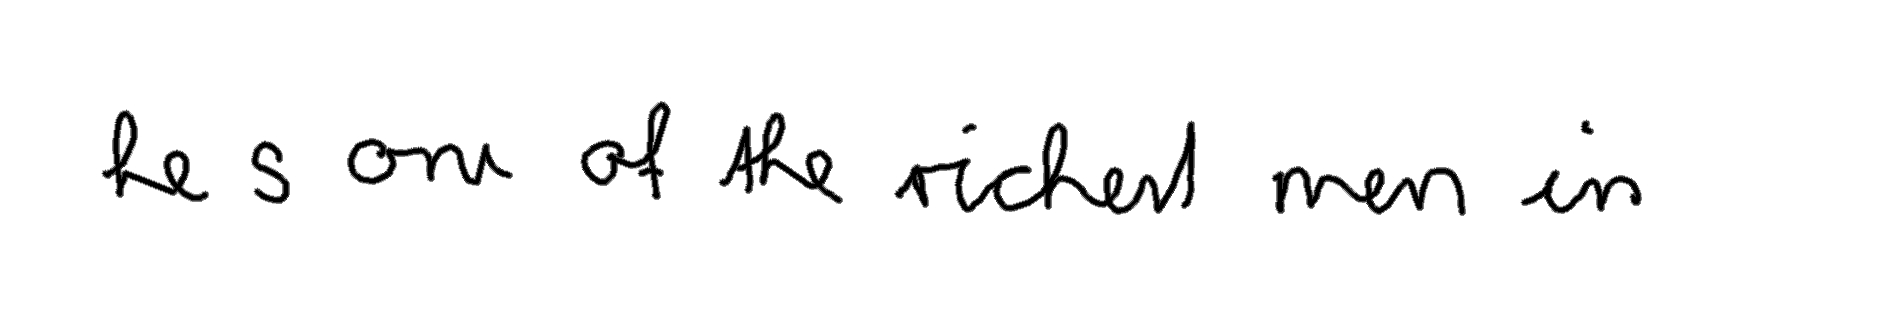 he s one of the richest men in